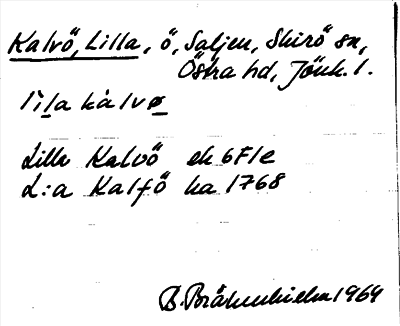 Kalvö, Lilla, ö, Saljen, Skirö sn,
Östra hd, Jönk. l.
lìla kàlvø
Lilla Kalvö ek 6F1e
L:a Kalfö ha 1768
B. 1969